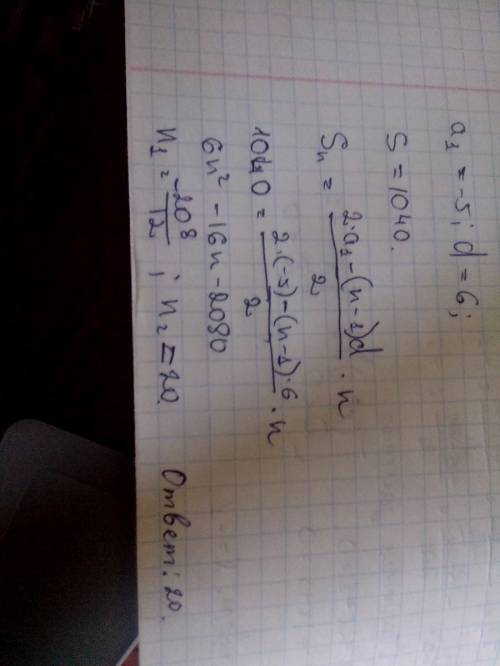 a₁ = -5; d = 6;
S = 1040.
Sₙ = (2·a₁-(n-1)d)/2 · n
1040 = (2·(-5)-(n-1)·6)/2 · n
6n² - 16n - 2080
n₁ = -208/12; n₂ = 20. Ответ: 20.